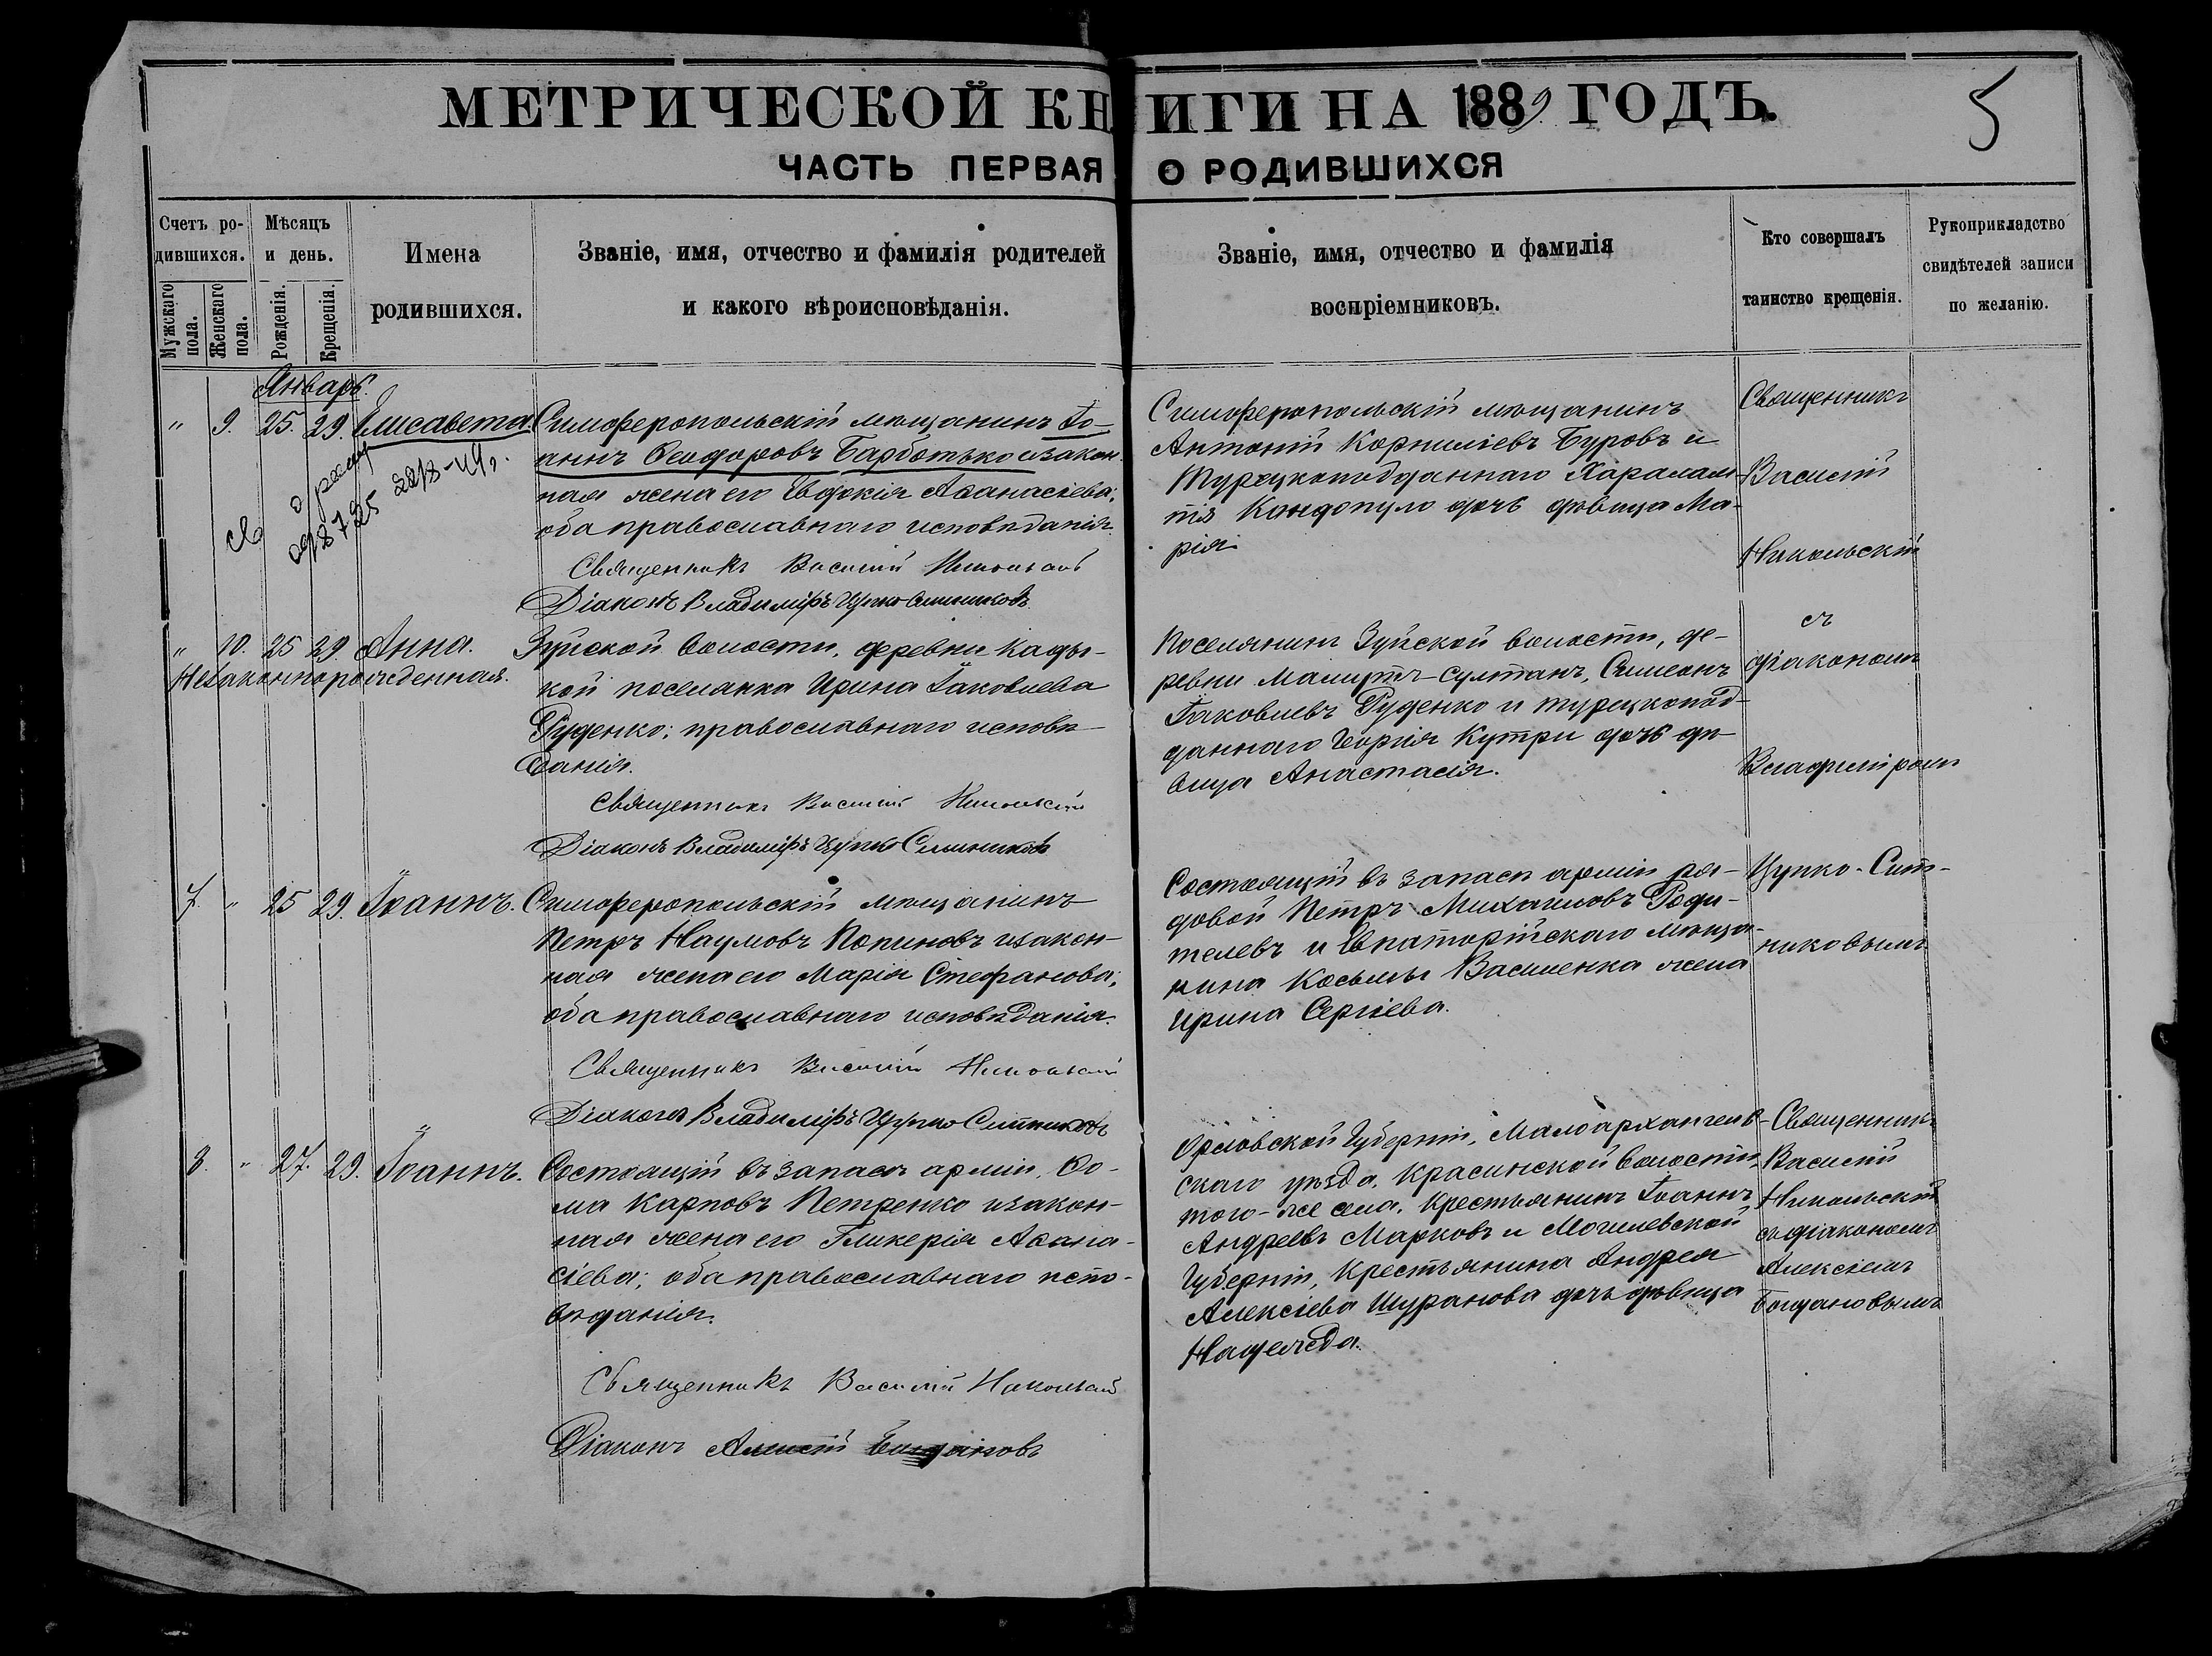 МЕТРИЧЕСКОЙ КНИГИ НА 1889 ГОДЪ.
5
ЧАСТЬ ПЕРВАЯ О РОДИВШИХСЯ
Счетъ ро-
дившихся.
Мужскаго
пола.
Женскаго
пола.
Мѣсяцъ
и день.
Рожденія.
Крещенія.
Имена
родившихся.
Званіе, имя, отчество и фамилія родителей
и какого вѣроисповѣданія.
Званіе, имя, отчество и фамилія
воспріемниковъ.
Кто совершалъ
таинство крещенія.
Рукоприкладство
свидѣтелей записи
по желанію.
Январь.
" 9. 25. 29. Елисавета.
Симферопольскій мѣщанинъ Іо-
аннъ Ѳеодоровъ Барботько и закон-
ная жена его Евдокія Аѳанасіева;
оба православнаго исповѣданія.
Священникъ Василій Никольскій
Діаконъ Владиміръ Цупко-Ситниковъ
Симферопольскій мѣщанинъ
Антоній Корниліевъ Буровъ и
Турецкоподданнаго Харалам-
пія Кондопуло дочь дѣвица Ма-
рія.
Священникъ
Василій
Никольскій
съ
діакономъ
Владиміромъ
Цупко-Сит-
никовымъ
" 10. 25 29 Анна.
Незаконнорожденная.
Зуйской волости, деревни Кады-
кой поселянка Ирина Іаковлева
Руденко; православнаго исповѣ-
данія.
Священникъ Василій Никольскій
Діаконъ Владиміръ Цупко-Ситниковъ
Поселянинъ Зуйской волости, де-
ревни -Султанъ, Симеонъ
Іаковлевъ Руденко и турецкопод-
даннаго Георгія Кутри дочь дѣ-
вица Анастасія.
7. " 25 29. Іоаннъ.
Симферопольскій мѣщанинъ
Петръ Наумовъ Попиновъ и закон-
ная жена его Марія Стефанова;
оба православнаго исповѣданія.
Священникъ Василій Никольскій
Діаконъ Владиміръ Цупко-Ситниковъ
Состоящій въ запасѣ арміи ря-
довой Петръ Михаиловъ Роди-
телевъ и Евпаторійскаго мѣща-
нина Косьмы Василенка жена
Ирина Сергіева.
8. " 27. 29. Іоаннъ.
Состоящій въ запасѣ арміи, Ѳо-
ма Карповъ Петренко и закон-
ная жена его Гликерія Аѳана-
сіева; оба православнаго испо-
вѣданія.
Священникъ Василій Никольскій
Діаконъ Алексій Богдановъ
Орловской Губерніи, Малоархангель-
скаго уѣзда, Красинской волости,
того-же села, крестьянинъ Іоаннъ
Андреевъ Марковъ и Могилевской
Губерніи, крестьянина Андрея
Алексіева Шуранова дочь дѣвица
Надежда.
Священникъ
Василій
Никольскій
съ діакономъ
Алексіемъ
Богдановымъ